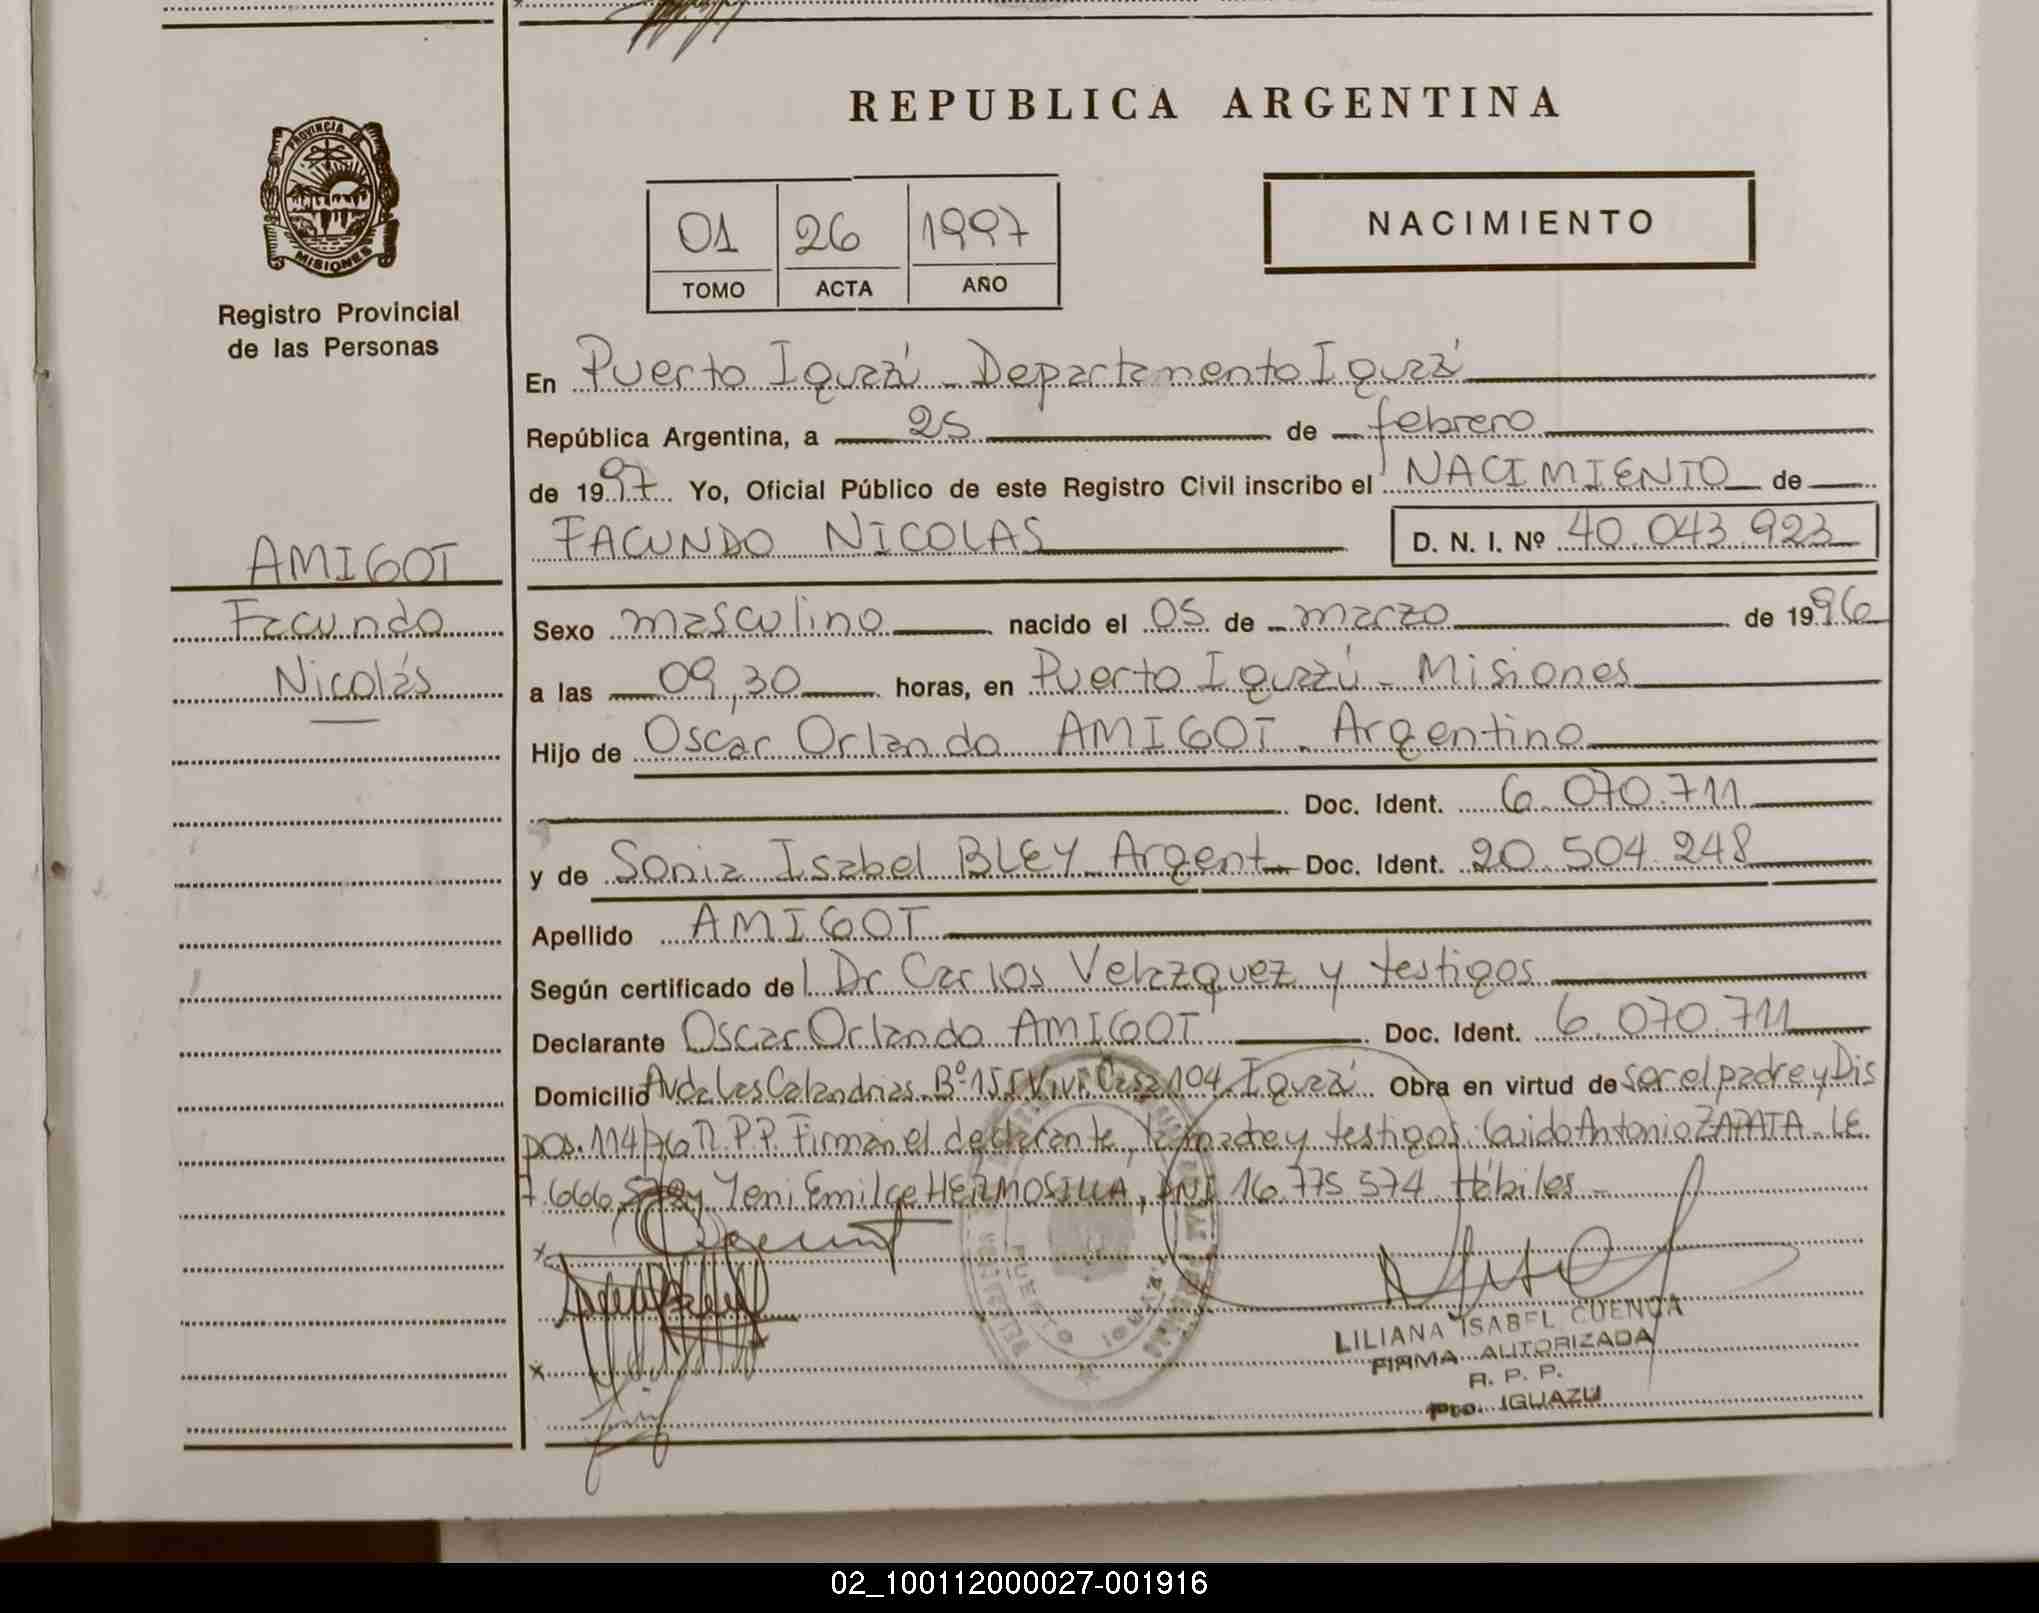 REPUBLICA ARGENTINA
PROVINCIA DE
MISIONES
Registro Provincial
de las Personas
01 26 1997
TOMO ACTA AÑO
NACIMIENTO
En Puerto Iguazú - Departamento Iguazú
República Argentina, a 25 de febrero
de 1997 Yo, Oficial Público de este Registro Civil inscribo el NACIMIENTO de
FACUNDO NICOLAS D. N. I. Nº 40.043.923
AMIGOT
Facundo
Nicolás
Sexo masculino nacido el 05 de marzo de 1996
a las 09,30 horas, en Puerto Iguazú - Misiones
Hijo de Oscar Orlando AMIGOT - Argentino
Doc. Ident. 6.070.711
y de Sonia Isabel BLEY - Argent Doc. Ident. 20.504.248
Apellido AMIGOT
Según certificado de Dr Carlos Velazquez y testigos
Declarante Oscar Orlando AMIGOT Doc. Ident. 6.070.711
Domicilio Avda Las Calandrias. Bº 155 Viv. Casa 104. Iguazú Obra en virtud de ser el padre y Dis
pos. 114/76 R.P.P. Firman el declarante, la madre y testigos: Guido Antonio ZAPATA - LE.
7.666. y Yeni Emilce HERMOSILLA, DNI 16.775.574 Hábiles -
LILIANA ISABEL CUENCA
FIRMA AUTORIZADA
R. P. P.
Pto. IGUAZU
02_100112000027-001916